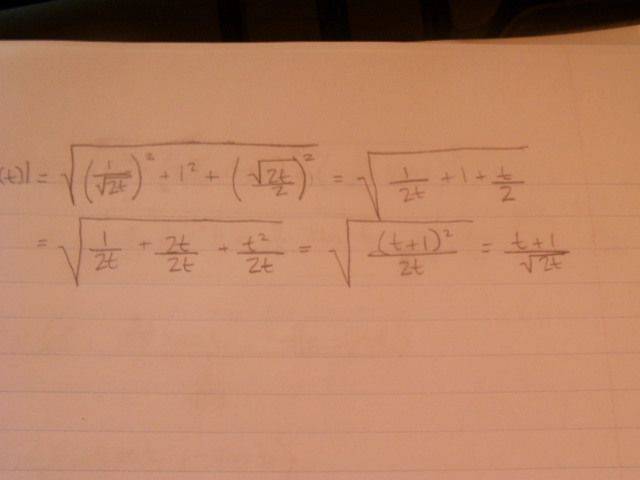 (t)| = √((1/√2t)² + 1² + (√2t/2)²) = √(1/2t + 1 + t/2)
= √(1/2t + 2t/2t + t²/2t) = √((t+1)²/2t) = t+1/√2t